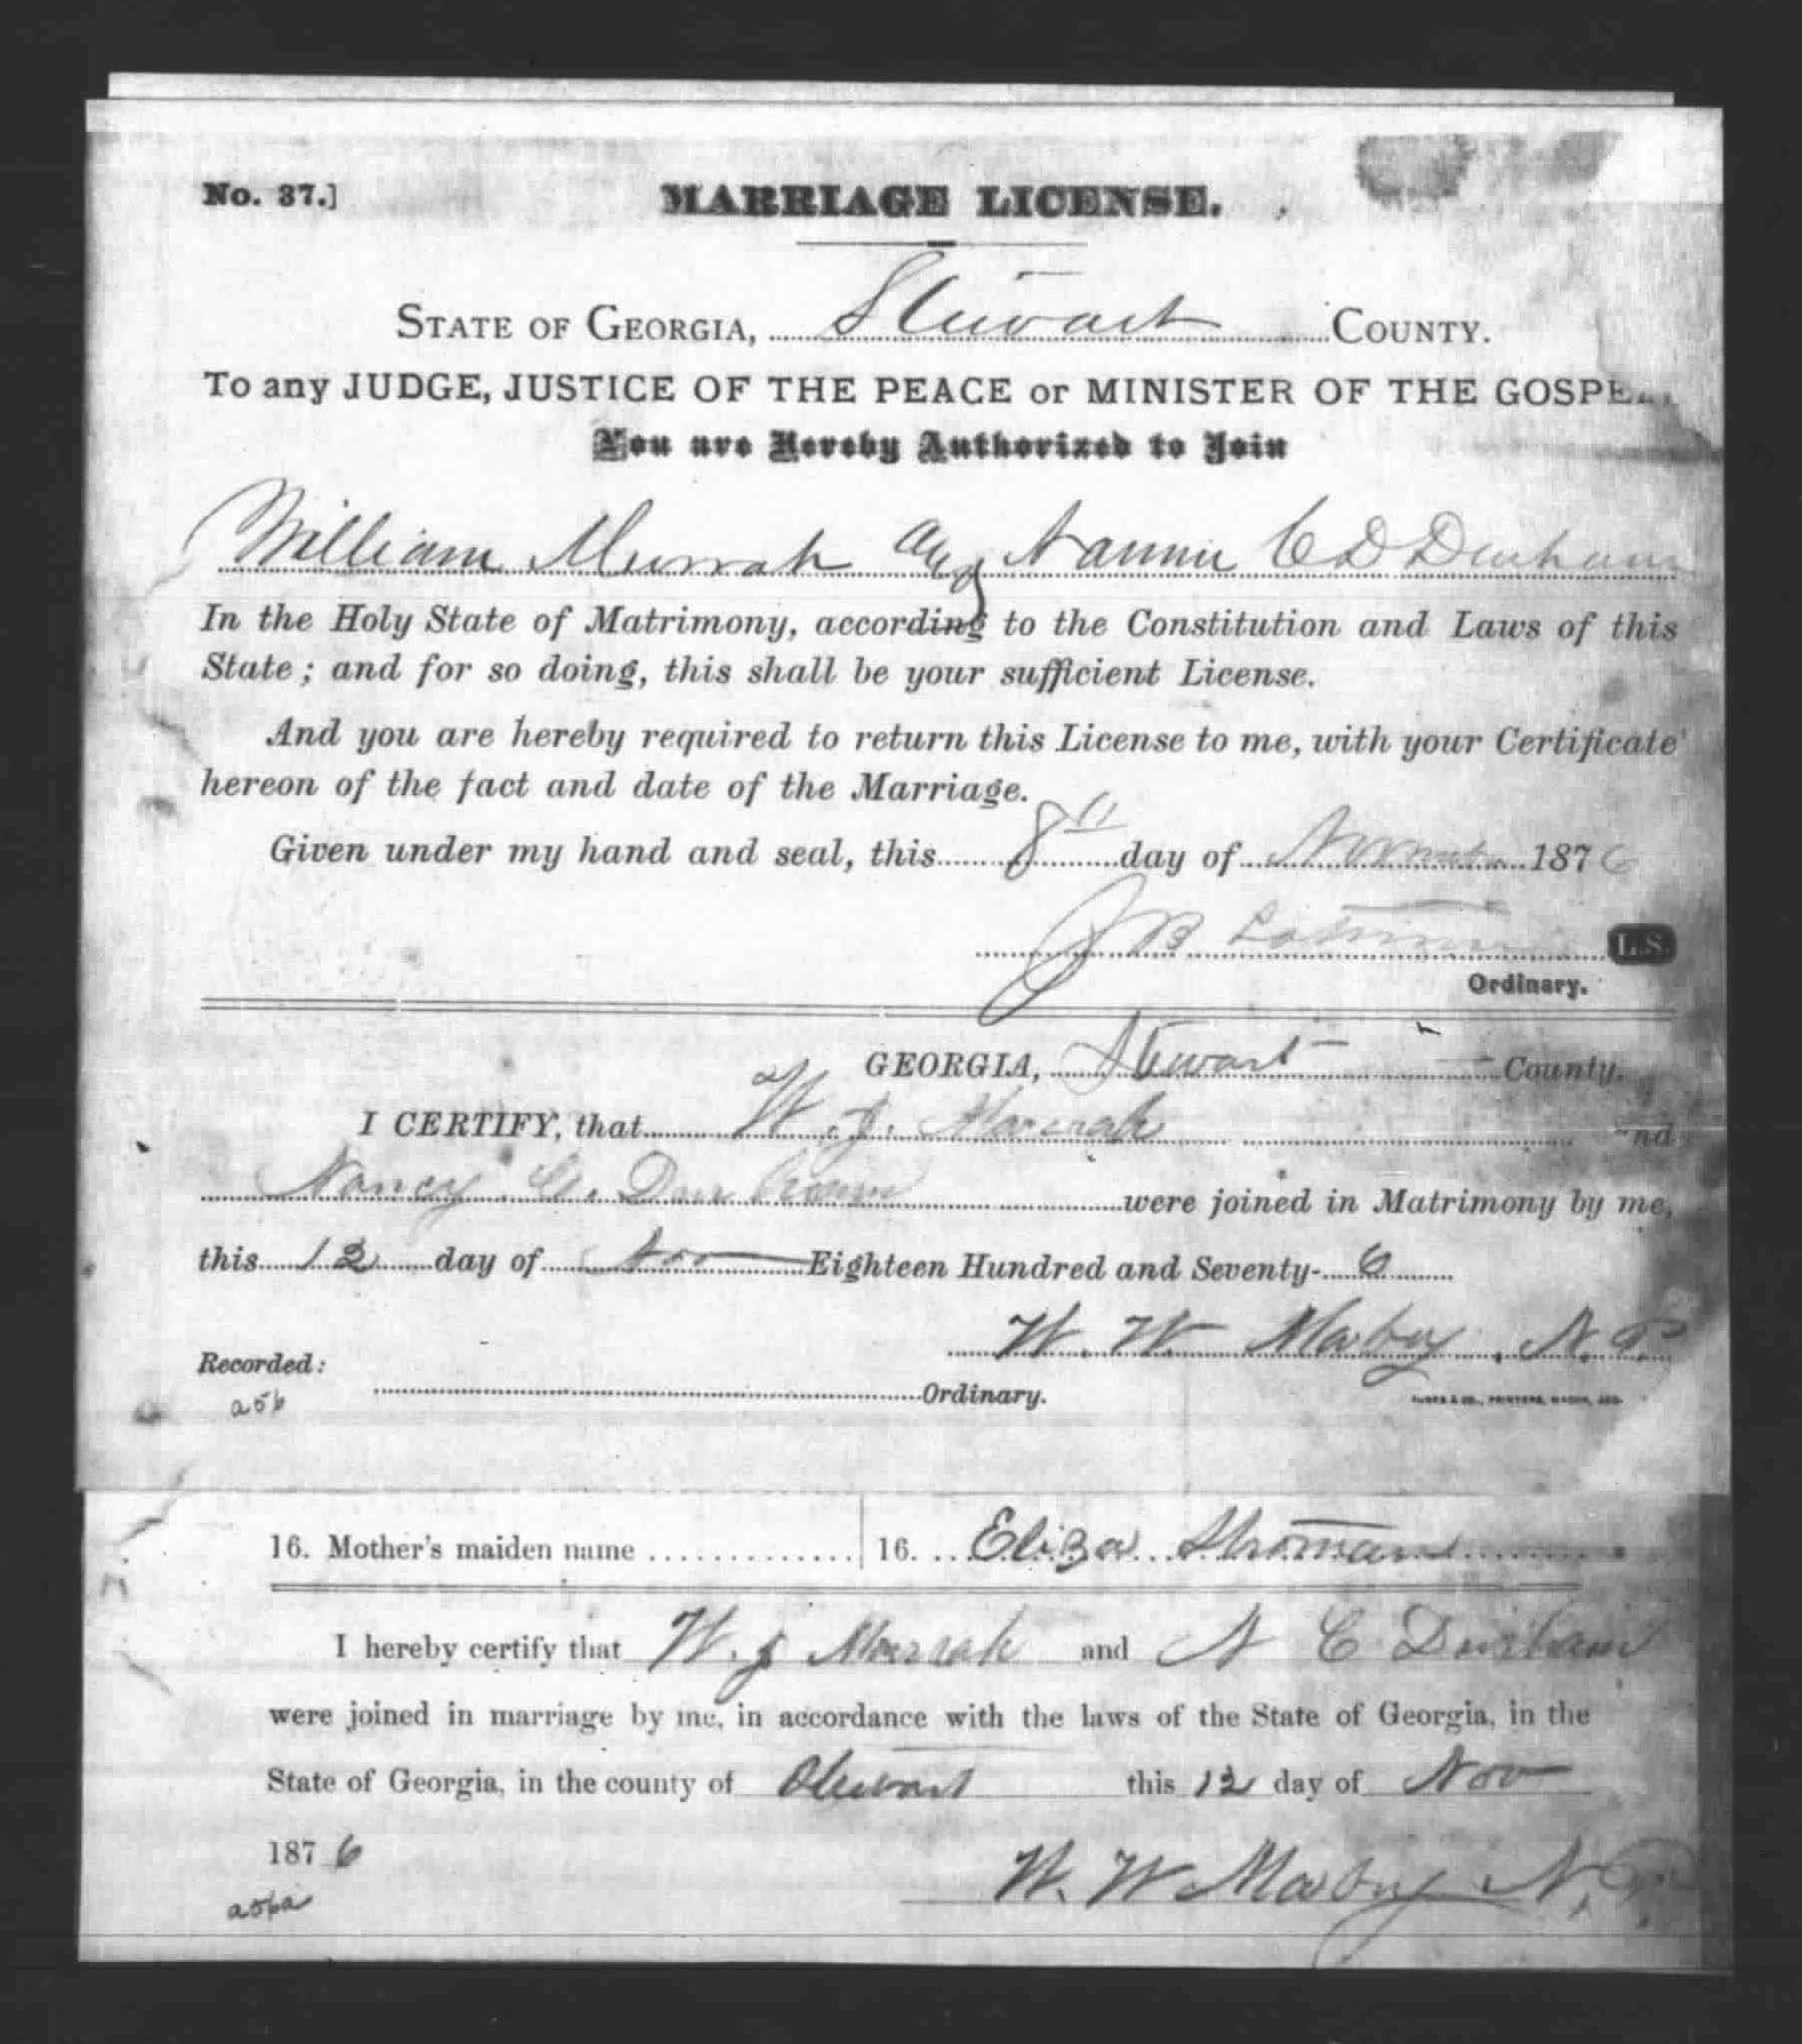 No. 37.]
MARRIAGE LICENSE.
STATE OF GEORGIA, Stewart COUNTY.
To any JUDGE, JUSTICE OF THE PEACE or MINISTER OF THE GOSPEL
You are Hereby Authorized to Join
William Murrah and Nannie C D Durham
In the Holy State of Matrimony, according to the Constitution and Laws of this
State; and for so doing, this shall be your sufficient License.
And you are hereby required to return this License to me, with your Certificate
hereon of the fact and date of the Marriage.
Given under my hand and seal, this 8th day of November 1876
J B L.S.
Ordinary.
GEORGIA, Stewart County.
I CERTIFY, that W. J. Murrah and
Nancy C. Durham were joined in Matrimony by me,
this 12 day of Nov Eighteen Hundred and Seventy-6
W. W. Marby, N. P.
Recorded:
Ordinary.
a56
16. Mother's maiden name 16. Eliza Stroman
I hereby certify that W. J Murrah and N C Durham
were joined in marriage by me, in accordance with the laws of the State of Georgia, in the
State of Georgia, in the county of Stewart this 12 day of Nov
1876
W. W Marby N. P.
a56a